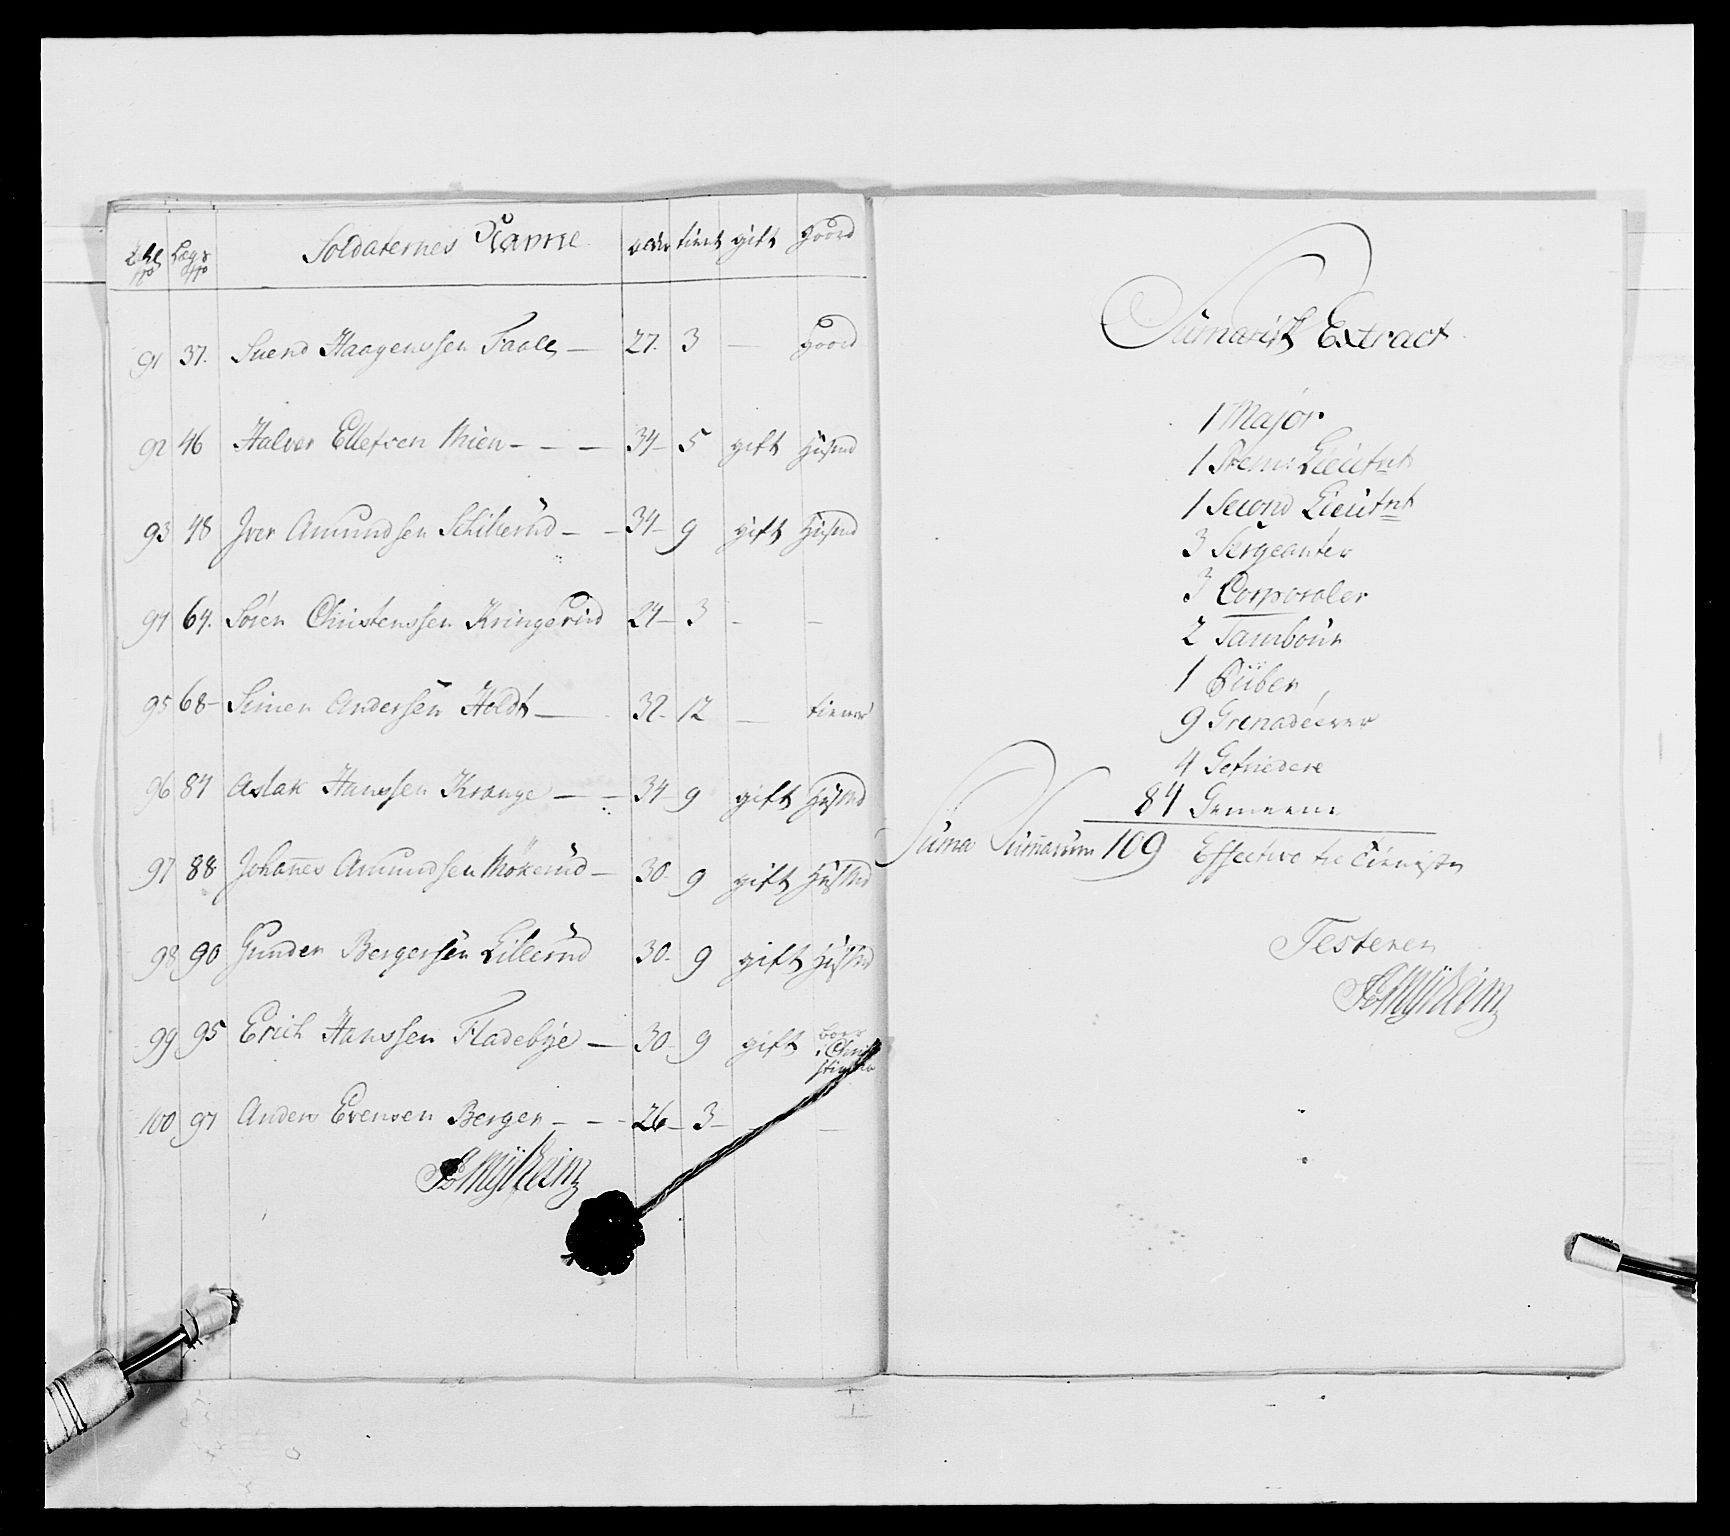 Lægs Soldaternes Nafne gift
No No
91 37. Suend Haagenssen Taale — 27. 3 —
92 46 Halvor Ellefsen Mien - - - 34 - 5 gift Husmd
93 48 Iver Amundsen Schiberud - - 34 - 9 gift Husmd
94 64. Sören Christenssen Kringerud 24 - 3 - -
95 68 - Simen Andersen Holdt — 32. 12 — tiener
96 84 Aslak Hanssen Krange — - 34 - 9 gift Husmd
97 88 Johannes Amundsen Mökerud - 30. 9 gift Husmd
98 90 Gunder Bergersen Lillerud 30. 9 gift Husmd
99 95 Erich Hanssen Fladebye — 30. 9 gift boer
i Chri
stiania
100 97 Anders Evensen Berger - - - 26 - 3 - - -
Sumarisk Extract
1 Major
1 Prem: Lieutnt
1 Second Lieutnt
3 Sergeanter
3 Corporaler
2 Tambour
1 Piiber
9 Grenadeerer
4 Gefriedere
84 Gemeene
Suma Sumarum 109 Effective til Tienniste
Testerer